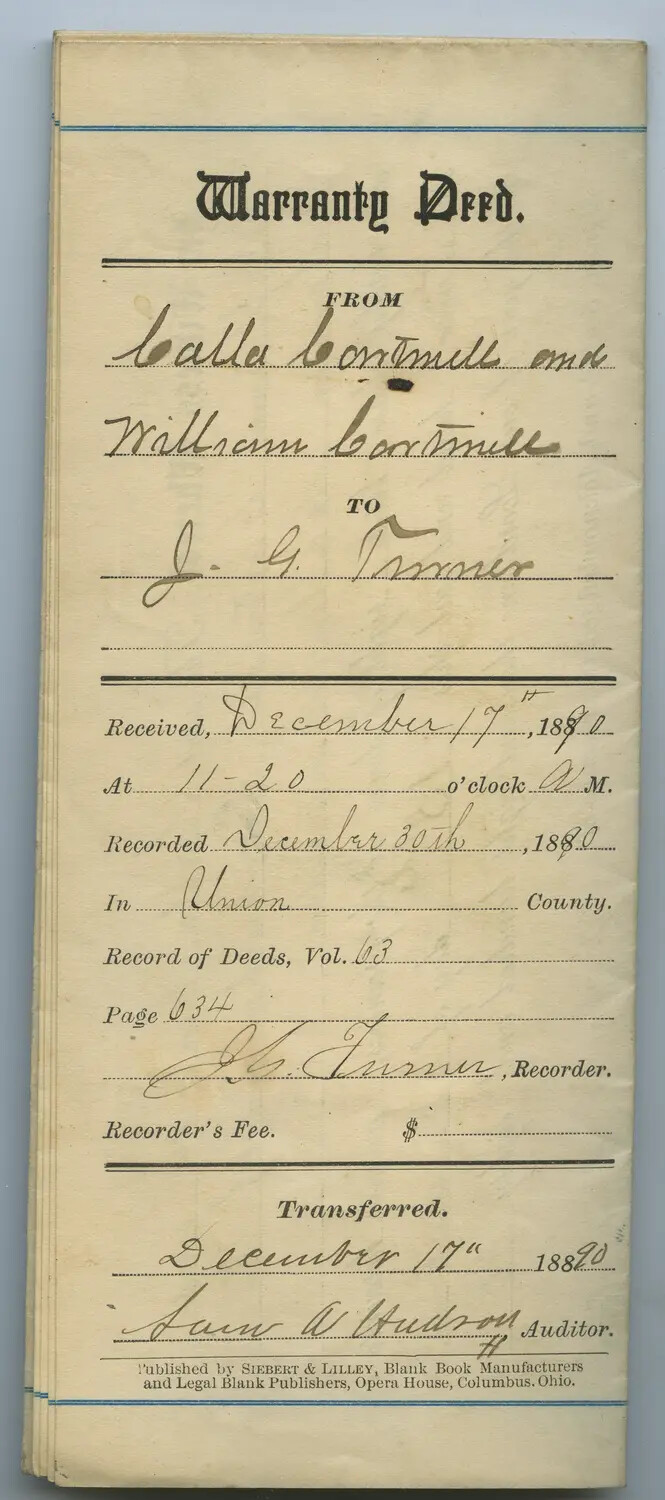 Warranty Deed.
FROM
Calla Cartmell and
William Cartmell
TO
J. G. Turner
Received, December 17", 1890
At 11-20 o'clock A M.
Recorded December 30th, 1890
In Union County.
Record of Deeds, Vol. 63
Page 634
J.G. Turner, Recorder.
Recorder's Fee. $
Transferred.
December 17" 18890
Sam A Hudson Auditor.
Published by SIEBERT & LILLEY, Blank Book Manufacturers
and Legal Blank Publishers, Opera House, Columbus. Ohio.